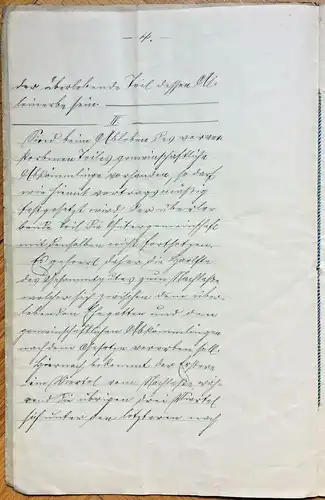 — 4. —
der überlebende Teil dessen All-
einerbe sein.
II.
Sind beim Ableben des verstor-
benen Teiles gemeinschaftliche
Abkömmlinge vorhanden, so darf,
wie hiemit vertragsmäßig
festgesetzt wird der überle-
bende Teil die Gütergemeinschaft
mit denselben nicht fortsetzen.
Es gehört daher die Hälfte
des Gesammtgutes zum Nachlasse
welcher sich zwischen dem über-
lebenden Ehegatten und den
gemeinschaftlichen Abkömmlingen
nach dem Gesetze vererben soll.
Hiernach bekommt der Erstere
ein Viertel vom Nachlasse wäh-
rend die übrigen drei Viertel
sich unter den letzteren nach